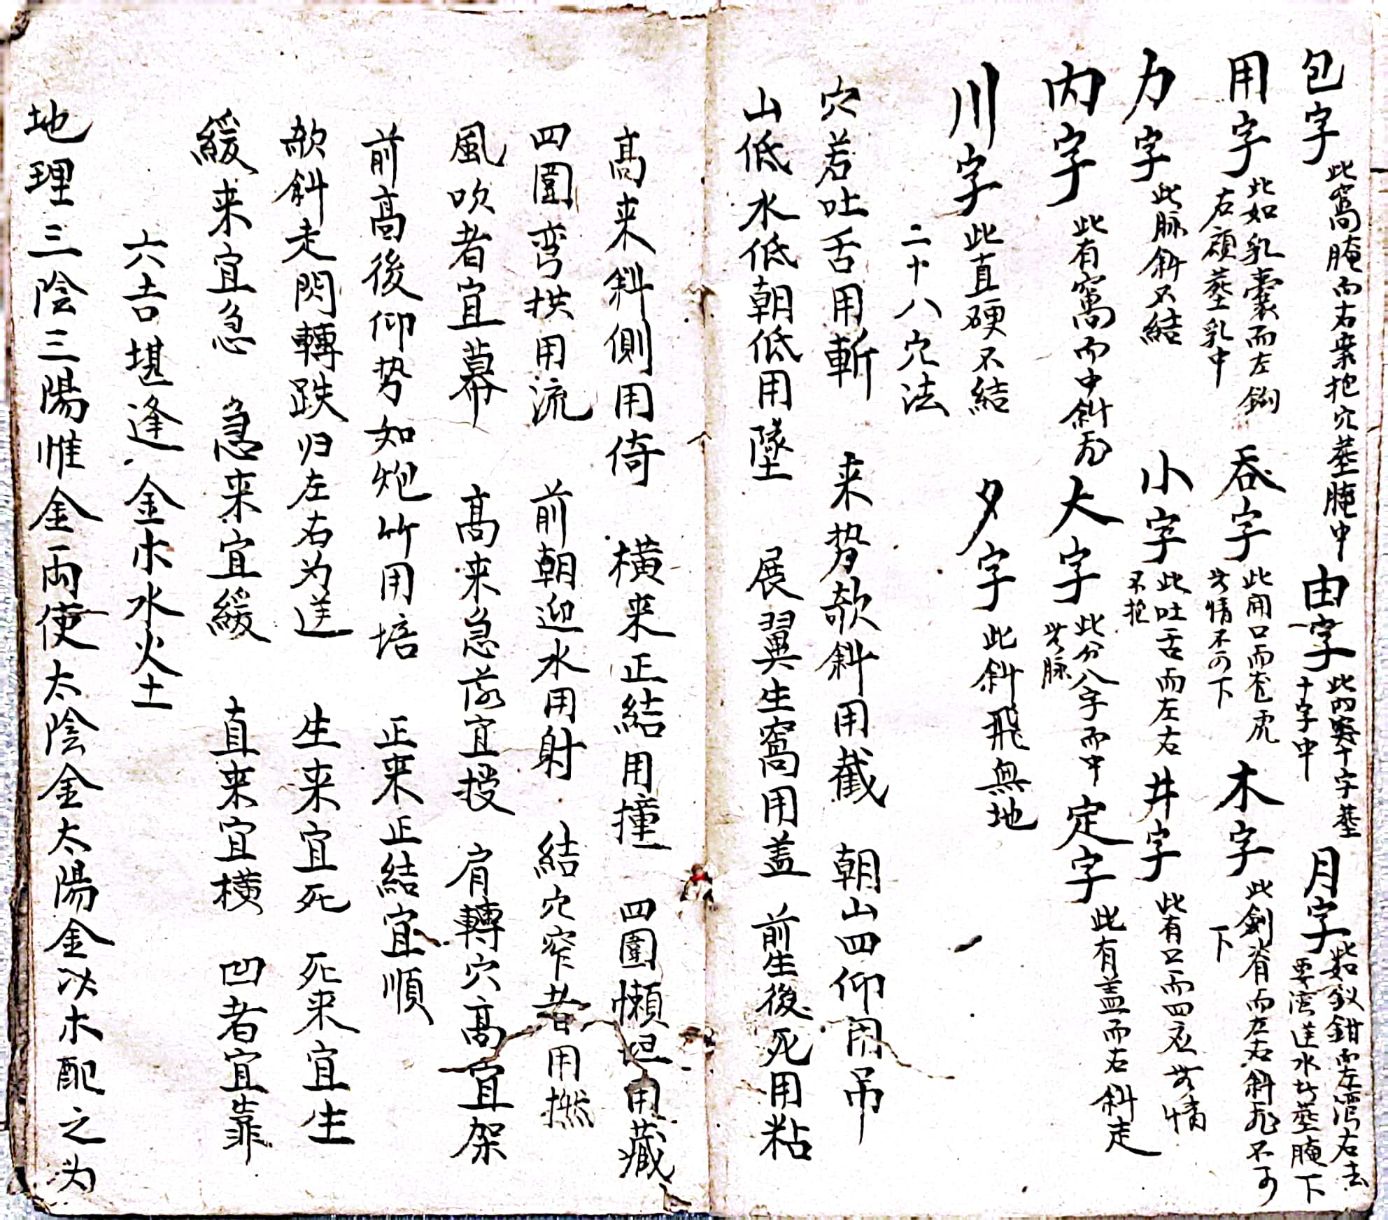 包字 此窩腌而右來抱穴塟腌中 由字 此四畧十字塟十字中 月字 此如釵鉗而左湾右去要湾送水方塟腌下
用字 此如乳囊而左鈎右顧塟乳中 吞字 此開口而龙虎无情不可下 木字 此劍脊而左右斜飛不可下
力字 此脉斜不結 小字 此吐舌而左右不抱 井字 此有口而四应无情
内字 此有窩而中斜飛 大字 此分八字而中无脉 定字 此有盖而右斜走
川字 此直硬不結 夕字 此斜飛無地
二十八穴法
穴若吐舌用斬 来势欹斜用截 朝山四仰用吊
山低水低朝低用墜 展翼生窩用盖 前生後死用粘
高来斜側用倚 横来正結用撞 四圍懶坦用藏
四圍弯拱用流 前朝迎水用射 結穴窄者用撚
風吹者宜幕 高来急落宜授 肩轉穴高宜架
前高後仰势如炮竹用培 正来正結宜順
欹斜走閃轉跌归左右为送 生来宜死 死来宜生
緩来宜急 急来宜緩 直来宜横 凹者宜靠
六吉堪逢金木水火土
地理三陰三陽惟金両使太陰金太陽金以木配之为